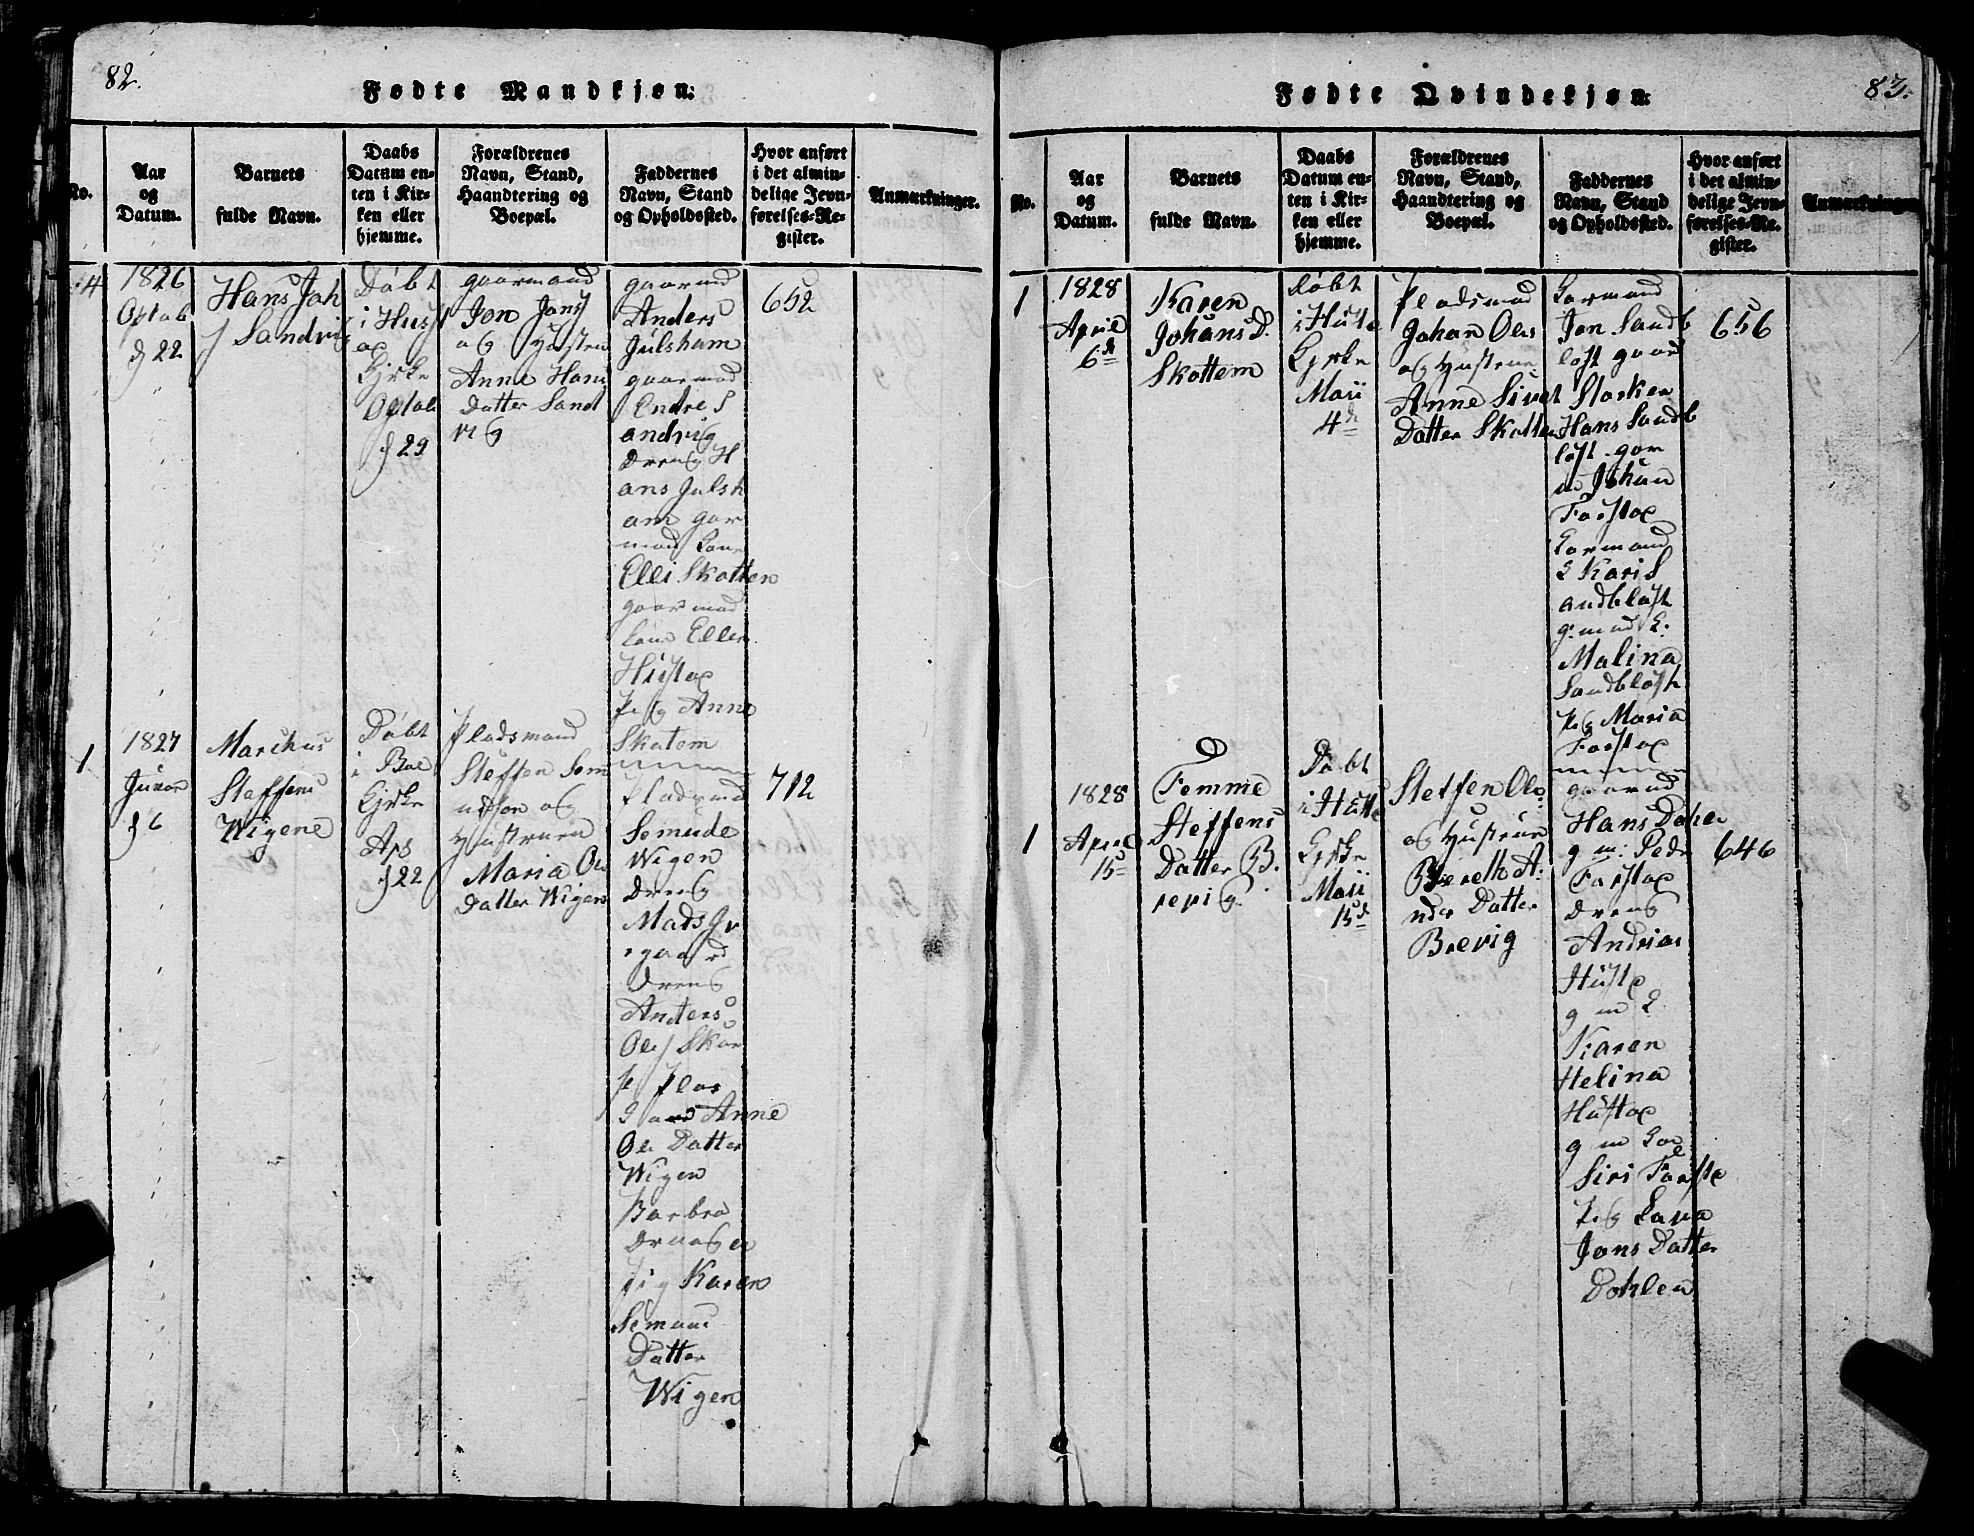 82.
Fødte Mandkjøn.
No.
Aar
og
Datum.
Barnets
fulde Navn.
Daabs
Datum en-
ten i Kir-
ken eller
hjemme.
Forældrenes
Navn, Stand,
Haandtering og
Boepæl.
Faddernes
Navn, Stand
og Opholdssted.
Hvor anført
i det almin-
delige Jevn-
førelses-Re-
gister.
Anmærkninger.
4
1826
Octob
d 22
Hans Joh
Sandvig
Døbt
i
og
Kirke
d 29
gaarmand
Jon Jons
og Hustru
Anne Hans
Datter Sand
vig
gaarmd
Anders
Julsham
gaarmd
Endre S
andvig
Dreng H
ans Julsh
am gar
mds Kone
Elli Skottem
gaarmds
Kone Ellen
Hustox
Pig Anne
Skotem
652
1
1827
Januar
d 6
Marchus
Steffens
Wigene
Døbt
i Boe
Kirke
Apr
d 22
Pladsmand
Steffen Sem
undsøn og
Hustruen
Maria Ols
Datter Wigen
Pladsmd
Semude
Wigen
Dreng
Mads
gaard
Dreng
Anders
Ols Skar
Anne
Ols Datter
Wigen
Barbra
Pig Karen
Semuns
Datter
Wigen
712
83.
Fødte Qvindekjøn.
No.
Aar
og
Datum.
Barnets
fulde Navn.
Daabs
Datum en-
ten i Kir-
ken eller
hjemme.
Forældrenes
Navn, Stand,
Haandtering og
Boepæl.
Faddernes
Navn, Stand
og Opholdssted.
Hvor anført
i det almin-
delige Jevn-
førelses-Re-
gister.
Anmærkninger
1
1828
April
6de
Karen
Johans D.
Skottem
Døbt
i Huste
Kirke
Maii
4de
Pladsmd
Johan Ols
og Hustrue
Anne Sivert
Datter Skottem
Garmand
Jon Sandb
løst gaar
Starker
Hans Sandb
løst gar
md Johan
Farstox
Garmand
K Kari S
andbløst
g: mand K:
Malina
Sandbløst
Pig Maria
Farstox
656
1
1828
April
15
Femme
Steffens
Datter B.
revig
Døbt
i Huste
Kirke
Maii
15de
Steffen Ols
og Hustrue
Bereth A:
nder Datter
Brevig
gaarmd
Hans Dohen
g m: Pedr
Farstox
Dreng
Andrias
Hustx
g m K
Karen
Helina
Hustox
g m Kone
Siri Farstx
Pig Lava
Jons Datter
Dohlen
646